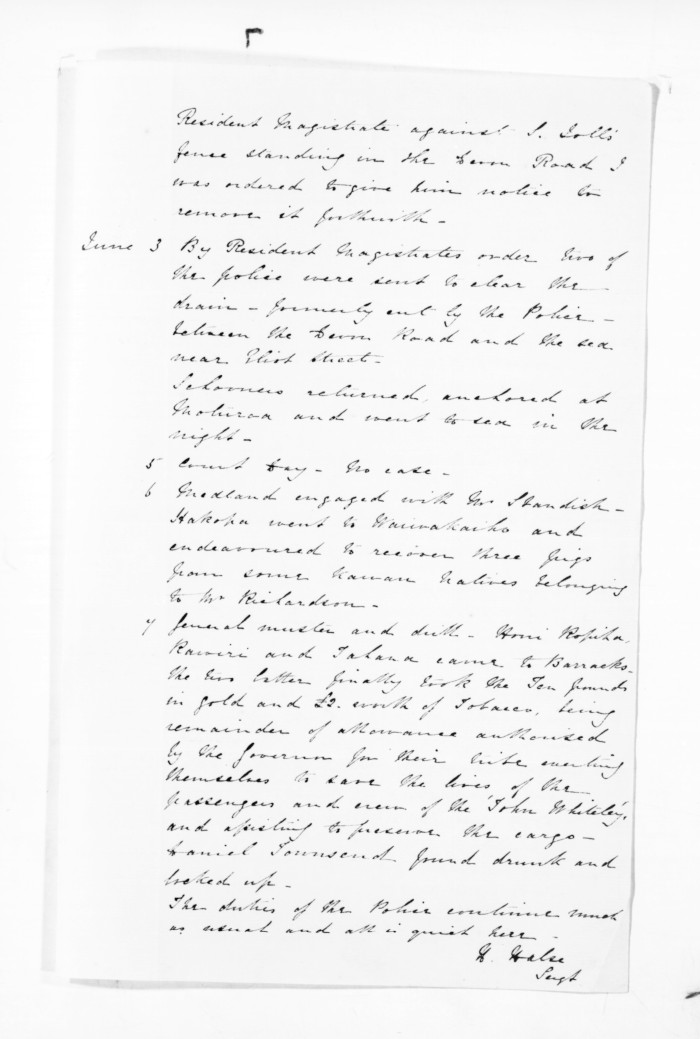 Resident Magistrate against S. Dolls
fence standing in the Devon Road I
was ordered to give him notice to
remove it forthwith -
June 3 By Resident Magistrates order two of
the police were sent to clear the
drain - formerly cut by the Police -
between the Devon Road and the sea
near Eliot Street -
Schooners returned, anchored at
Moturoa and went to sea in the
night -
5 Court Day - No case -
6 Medland engaged with Mr Standish -
Hakopa went to Waiwakaiho and
endeavoured to recover three pigs
from some Natives belonging
to Mr Richardson -
7 General muster and drill - Honi Ropiha,
Rawiri and Tahana came to Barracks -
the two latter finally took the Ten pounds
in gold and £2. worth of Tobacco, being
remainder of allowance authorised
by the Governor for their tribe exerting
themselves to save the lives of the
passengers and crew of the 'John Whiteley',
and assisting to preserve the cargo -
Daniel Townsend found drunk and
locked up -
The duties of the Police continue much
as usual and all is quiet here -
H. Halse
Sergt